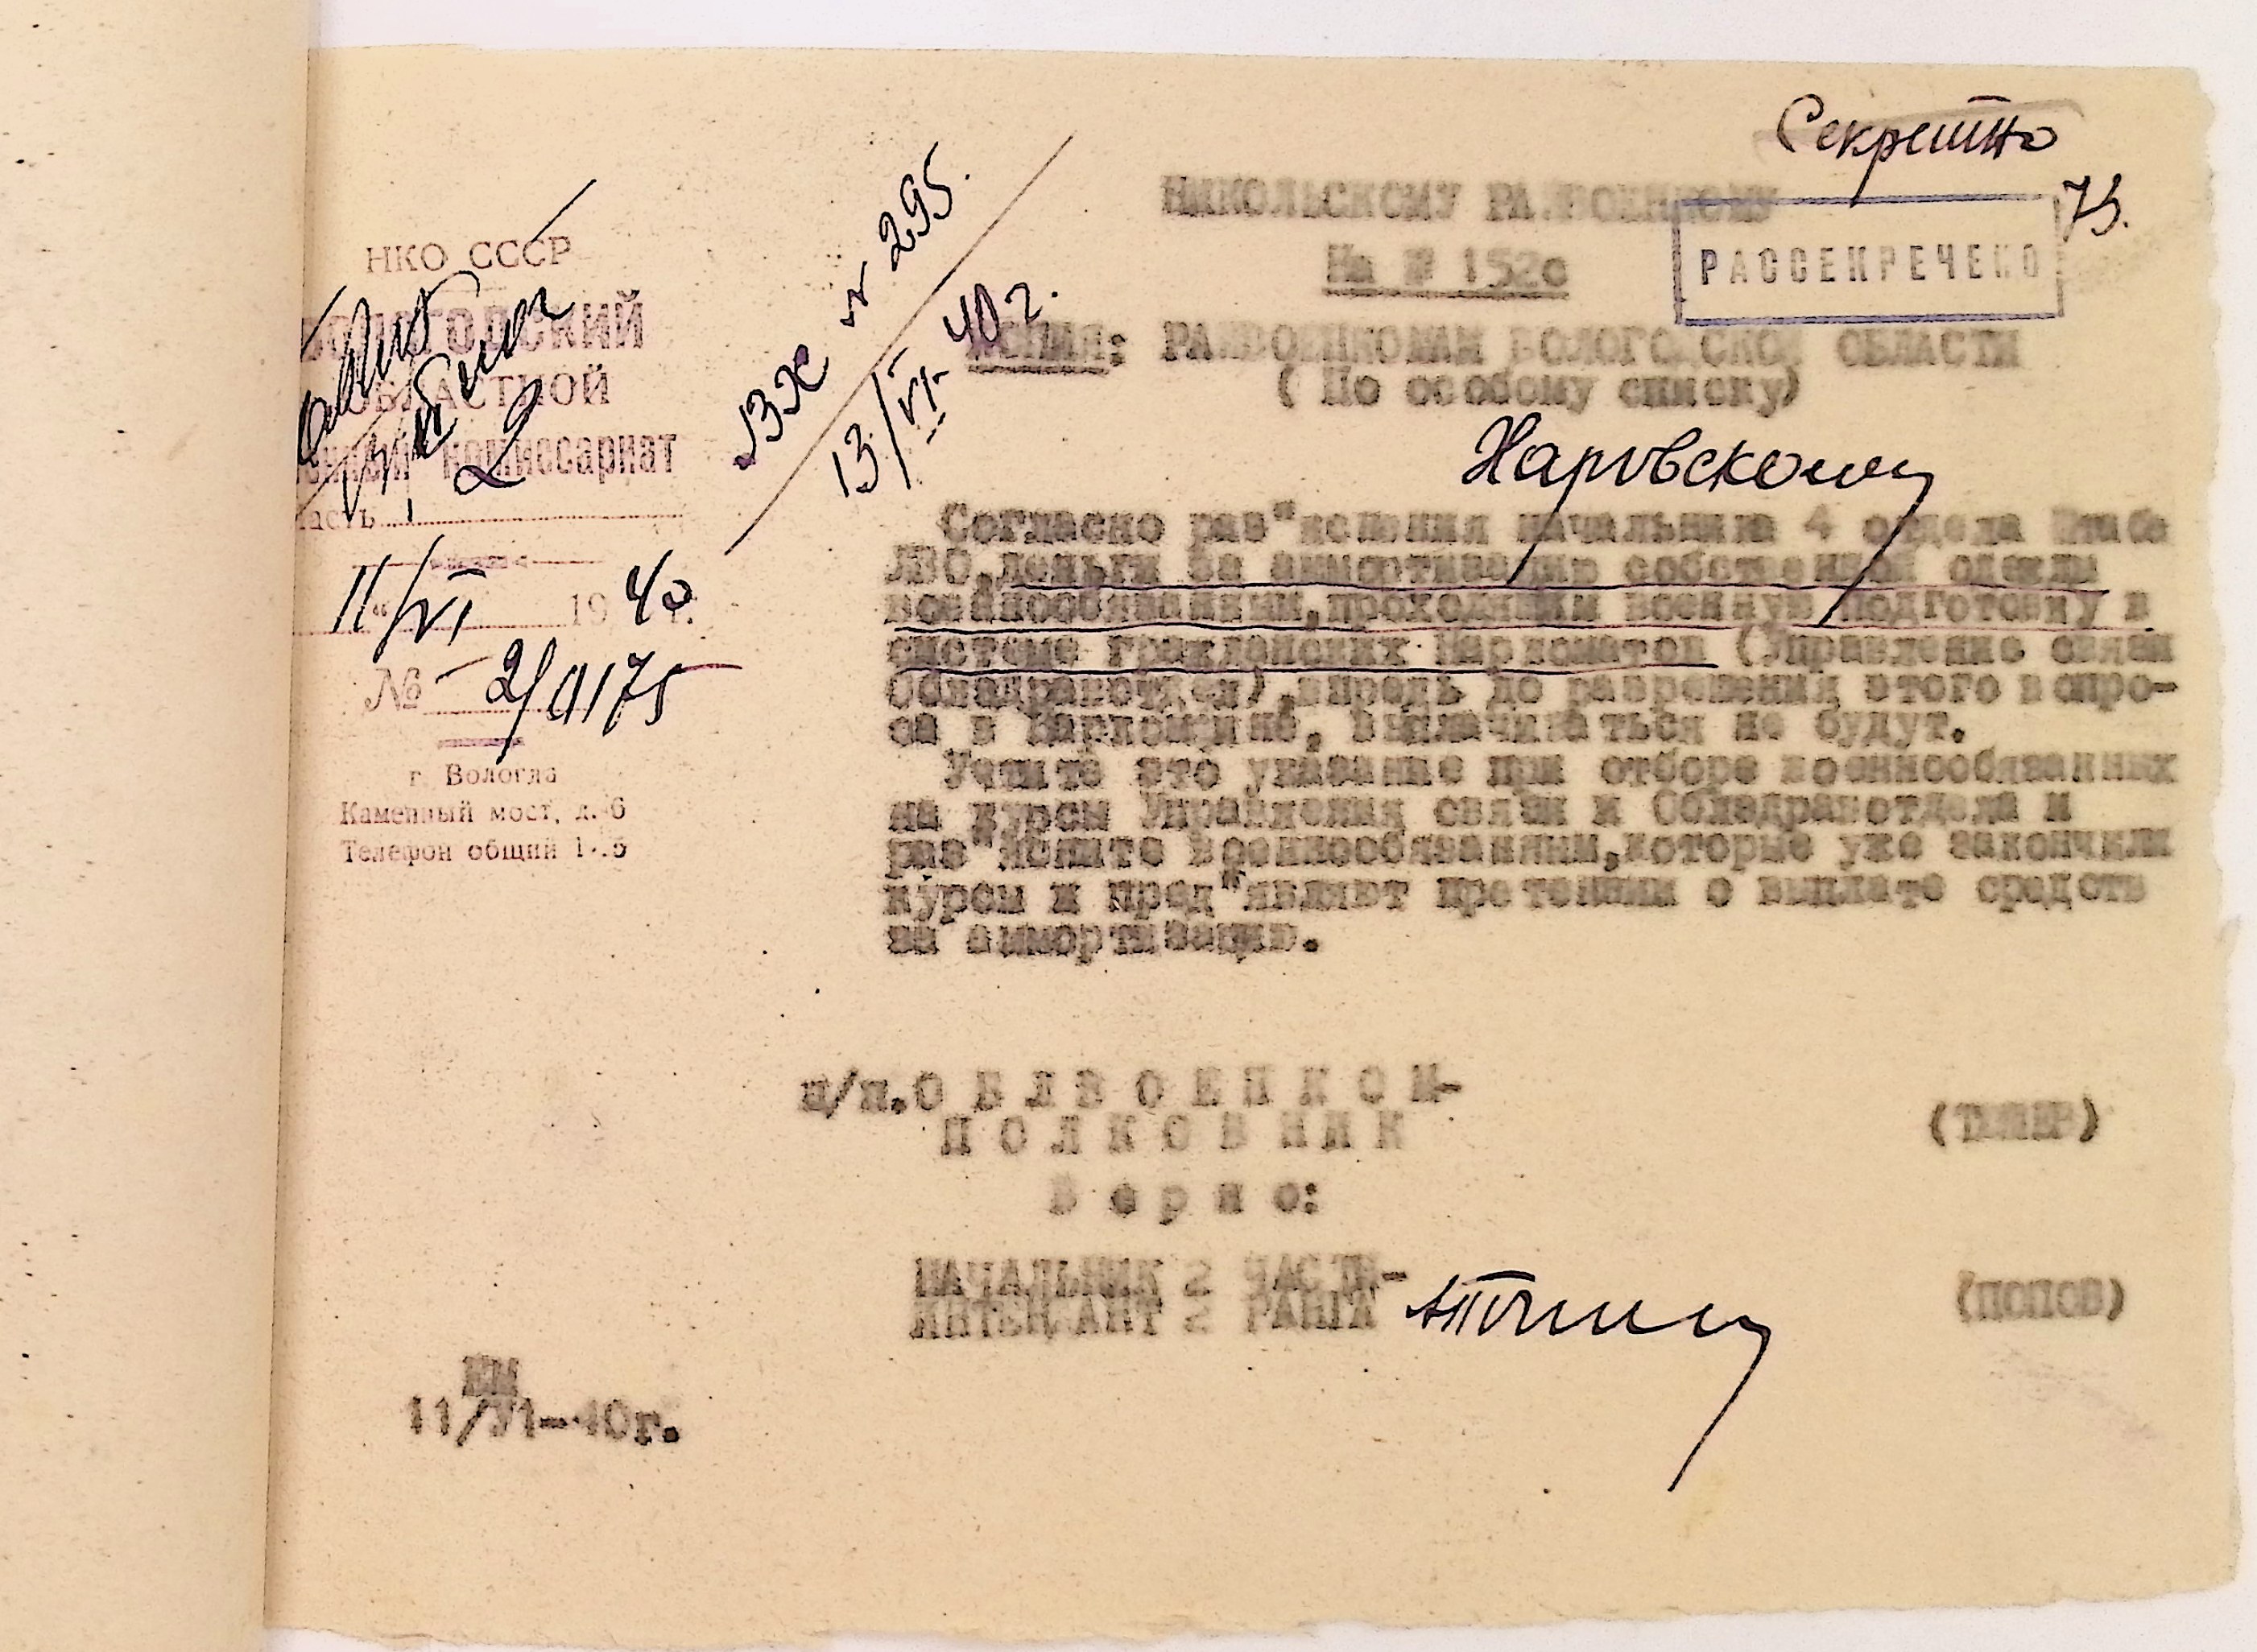 Секретно
75.
НИКОЛЬСКОМУ РАЙВОЕНКОМУ
РАССЕКРЕЧЕНО
На № 152с
КОПИЯ: РАЙВОЕНКОМАМ ВОЛОГОДСКОЙ ОБЛАСТИ
( По особому списку)
НКО СССР
ВОЛОГОДСКИЙ
ОБЛАСТНОЙ
комиссариат
часть
2
11/VI 1940 г.
№ 2/0175
г. Вологда
Каменный мост, д. 6
Телефон общий
вх № 295.
13/VI-40 г.
Согласно раз"яснения начальника 4 отдела Штаба
ЛВО,деньги за аммортизацию собственной одежды
военнообязанным,проходящим военную подготовку в
системе гражданских Наркоматов (Управление связи
Облздравотдел),впредь до разрешения этого вопро-
са в Наркомфине, выплачиваться не будут.
Учтите это указание при отборе военнообязанных
на курсы Управления связи и Облздравотдела и
раз"ясните военнообязанным,которые уже закончили
курсы и пред"являют претензии о выплате средств
за аммортизацию.
п/п.ОБЛВОЕНКОМ-
ПОЛКОВНИК
Верно:
НАЧАЛЬНИК 2 ЧАСТИ-
ИНТЕНДАНТ 2 РАНГА
(ПОПОВ)
11/У1-40г.